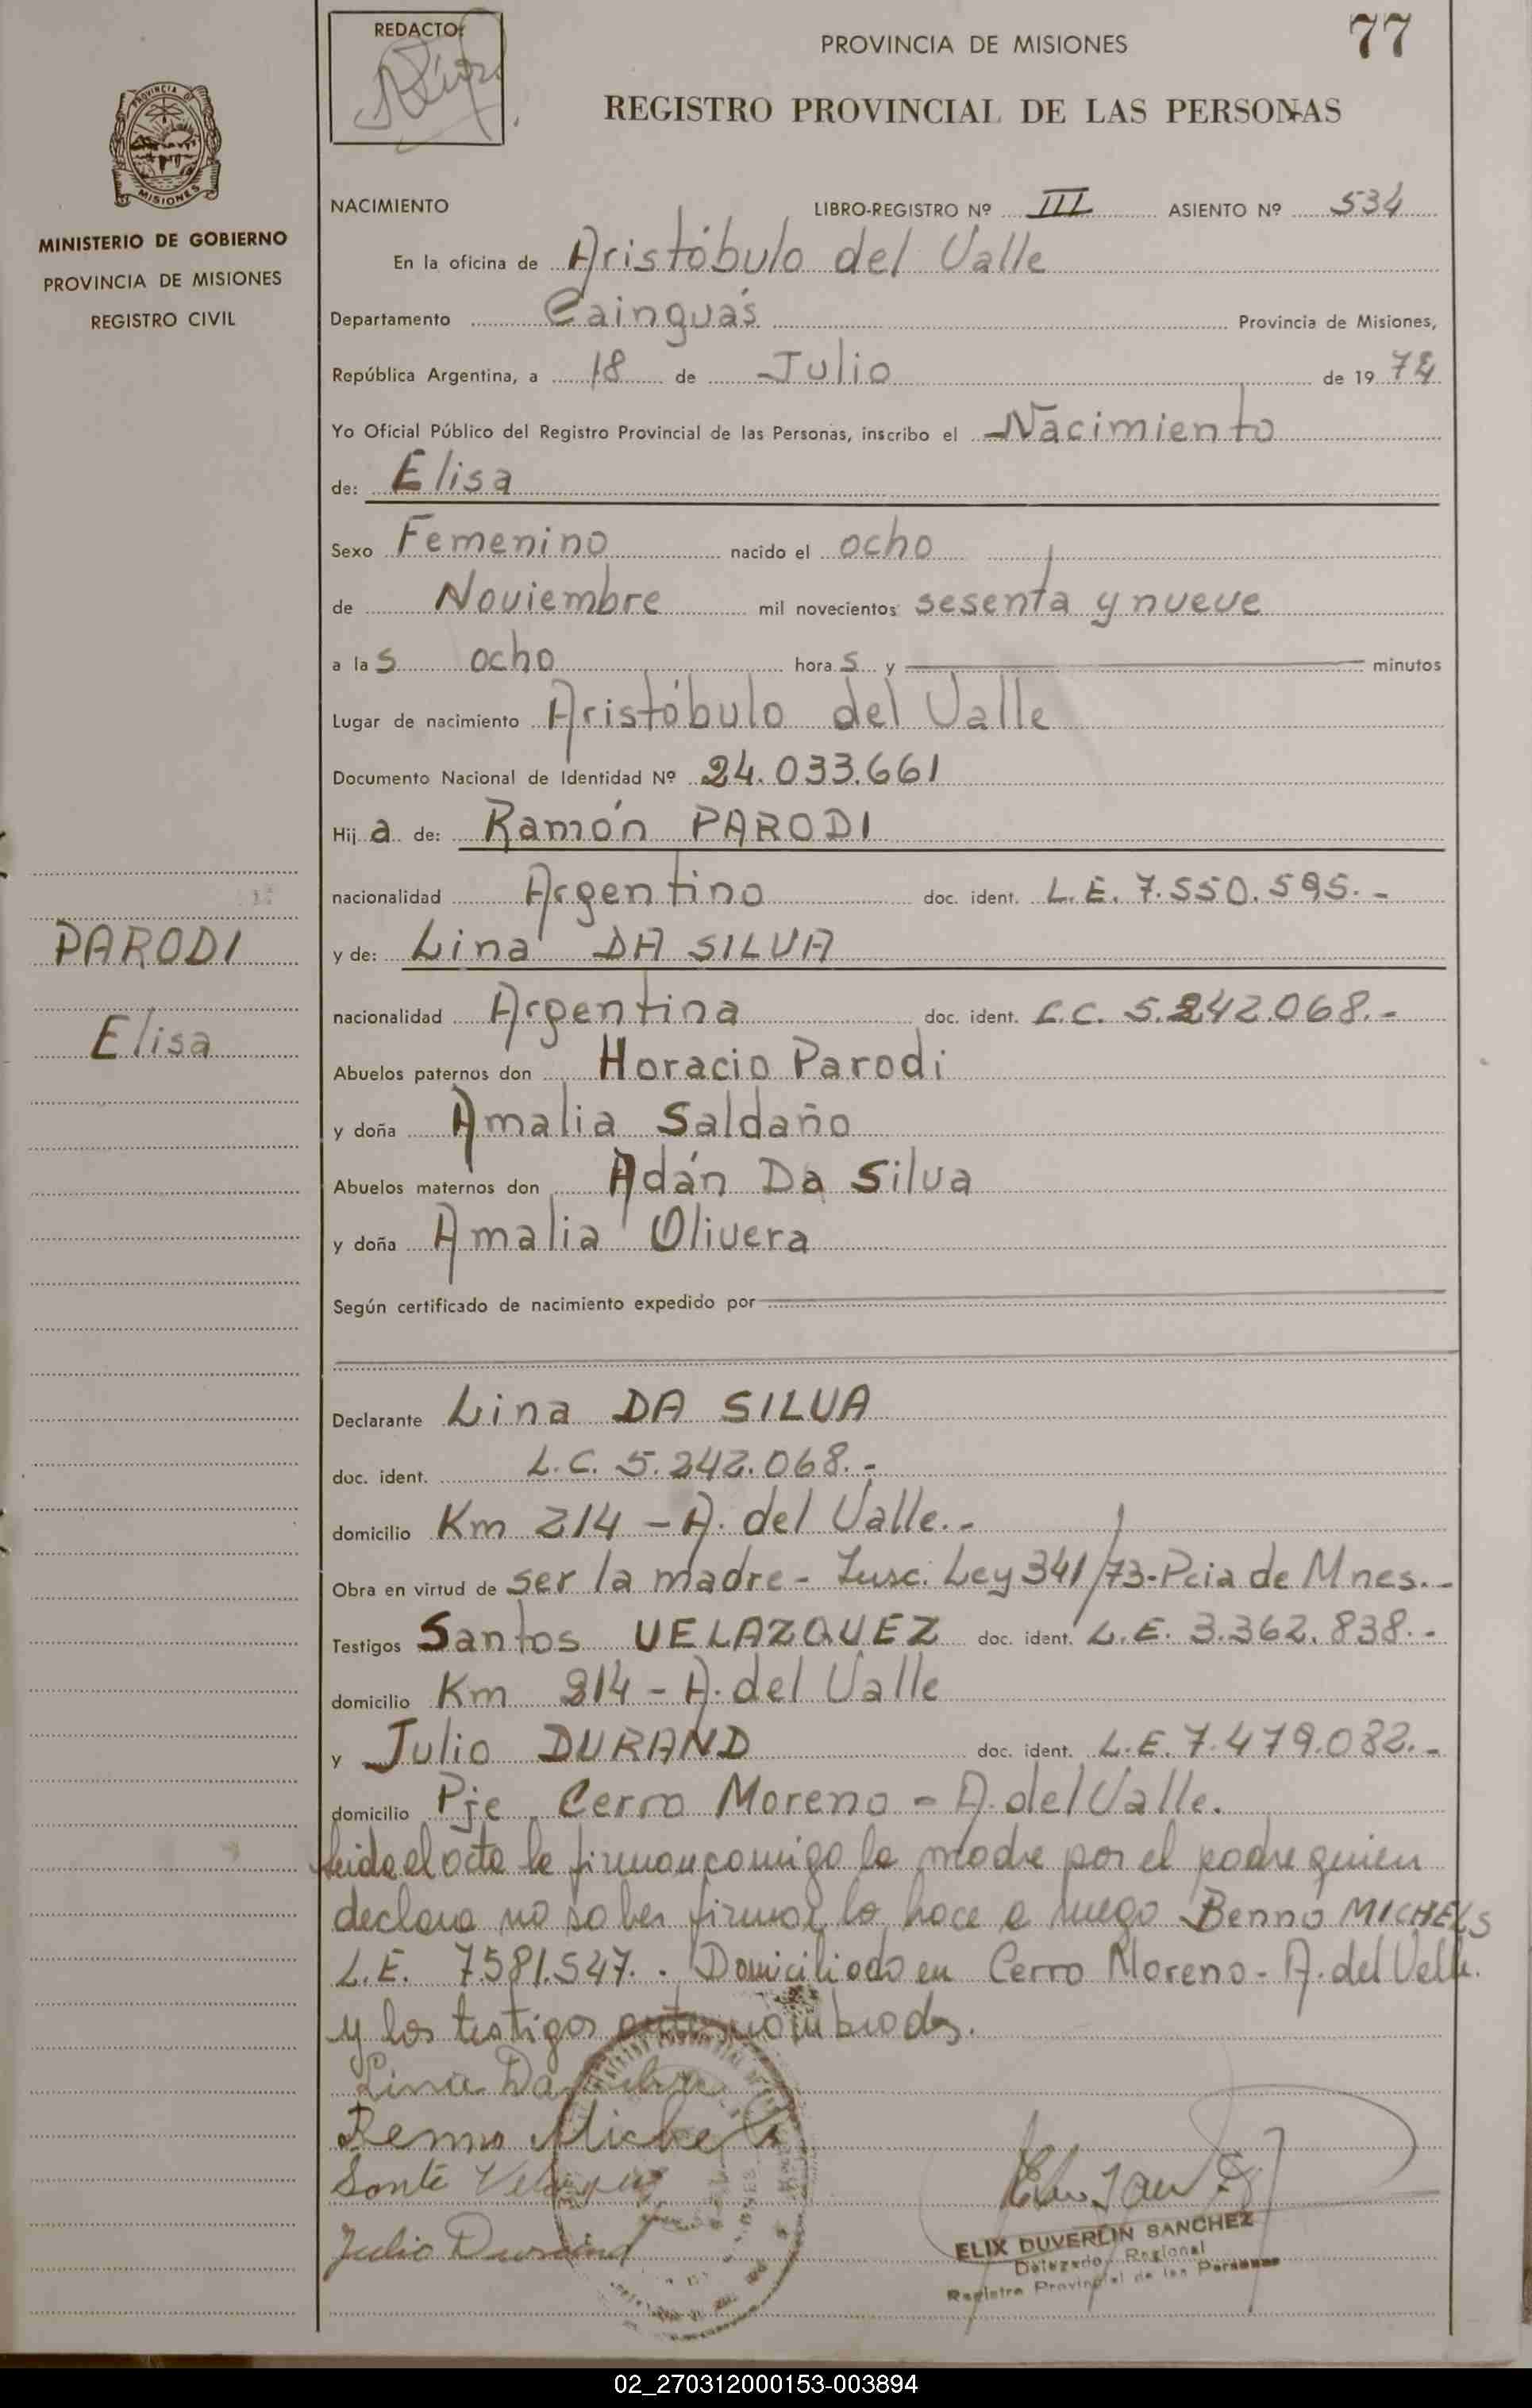 REDACTO:
PROVINCIA DE MISIONES
77
REGISTRO PROVINCIAL DE LAS PERSONAS
PROVINCIA DE
MISIONES
MINISTERIO DE GOBIERNO
PROVINCIA DE MISIONES
REGISTRO CIVIL
NACIMIENTO LIBRO-REGISTRO Nº III ASIENTO Nº 534
En la oficina de Aristóbulo del Valle
Departamento Cainguás Provincia de Misiones,
República Argentina, a 18 de Julio de 19 74
Yo Oficial Público del Registro Provincial de las Personas, inscribo el Nacimiento
de: Elisa
Sexo Femenino nacido el ocho
de Noviembre mil novecientos sesenta y nueve
a las ocho horas y minutos
Lugar de nacimiento Aristóbulo del Valle
Documento Nacional de Identidad Nº 24.033.661
Hija de: Ramón PARODI
nacionalidad Argentino doc. ident. L.E. 7.550.595.-
PARODI
y de: Lina DA SILVA
nacionalidad Argentina doc. ident. L.C. 5.242.068.-
Elisa
Abuelos paternos don Horacio Parodi
y doña Amalia Saldaño
Abuelos maternos don Adán Da Silva
y doña Amalia Olivera
Según certificado de nacimiento expedido por
Declarante Lina DA SILVA
doc. ident. L.C. 5.242.068.-
domicilio Km 214 - A. del Valle.-
Obra en virtud de ser la madre - Insc. Ley 341/73-Pcia de Mnes.-
Testigos Santos VELAZQUEZ doc. ident. L.E. 3.362.838.-
domicilio Km 214 - A. del Valle
y Julio DURAND doc. ident. L.E. 7.479.082.-
domicilio Pje Cerro Moreno - A. del Valle.
leida el acta la firman comigo la madre por el padre quien
declara no saber firmar lo hace a ruego Benno MICHELS
L.E. 7581.547.. Domiciliado en Cerro Moreno - A. del Valle.
y los testigos antes nombrados.
Lina Da Silva
Benno Michels
Santo Velazquez
Julio Durand
ELIX DUVERLIN SANCHEZ
Delegado Regional
Registro Provincial de las Personas
02_270312000153-003894